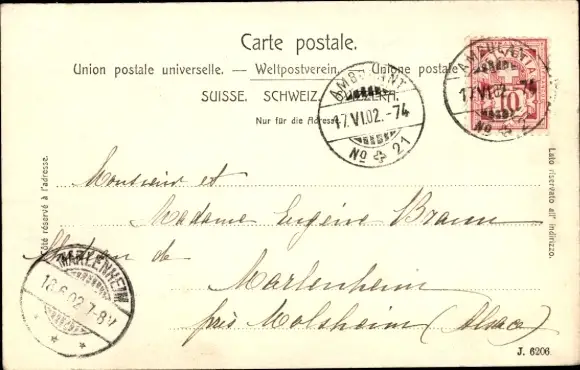 Carte postale.
Union postale universelle. — Weltpostverein. — Unione postale
SUISSE. SCHWEIZ. SVIZZERA.
Nur für die Adresse.
AMBULANT
17.VI.02.-74
No 21
AMBULANT
17.VI.02.-74
No 21
10
Côté réservé à l'adresse.
Lato riservato all' indirizzo.
Monsieur et
Madame Eugène Braun
de
Marlenheim
près Molsheim (Alsace)
MARLENHEIM
18.6.02 7-8V
J. 6206